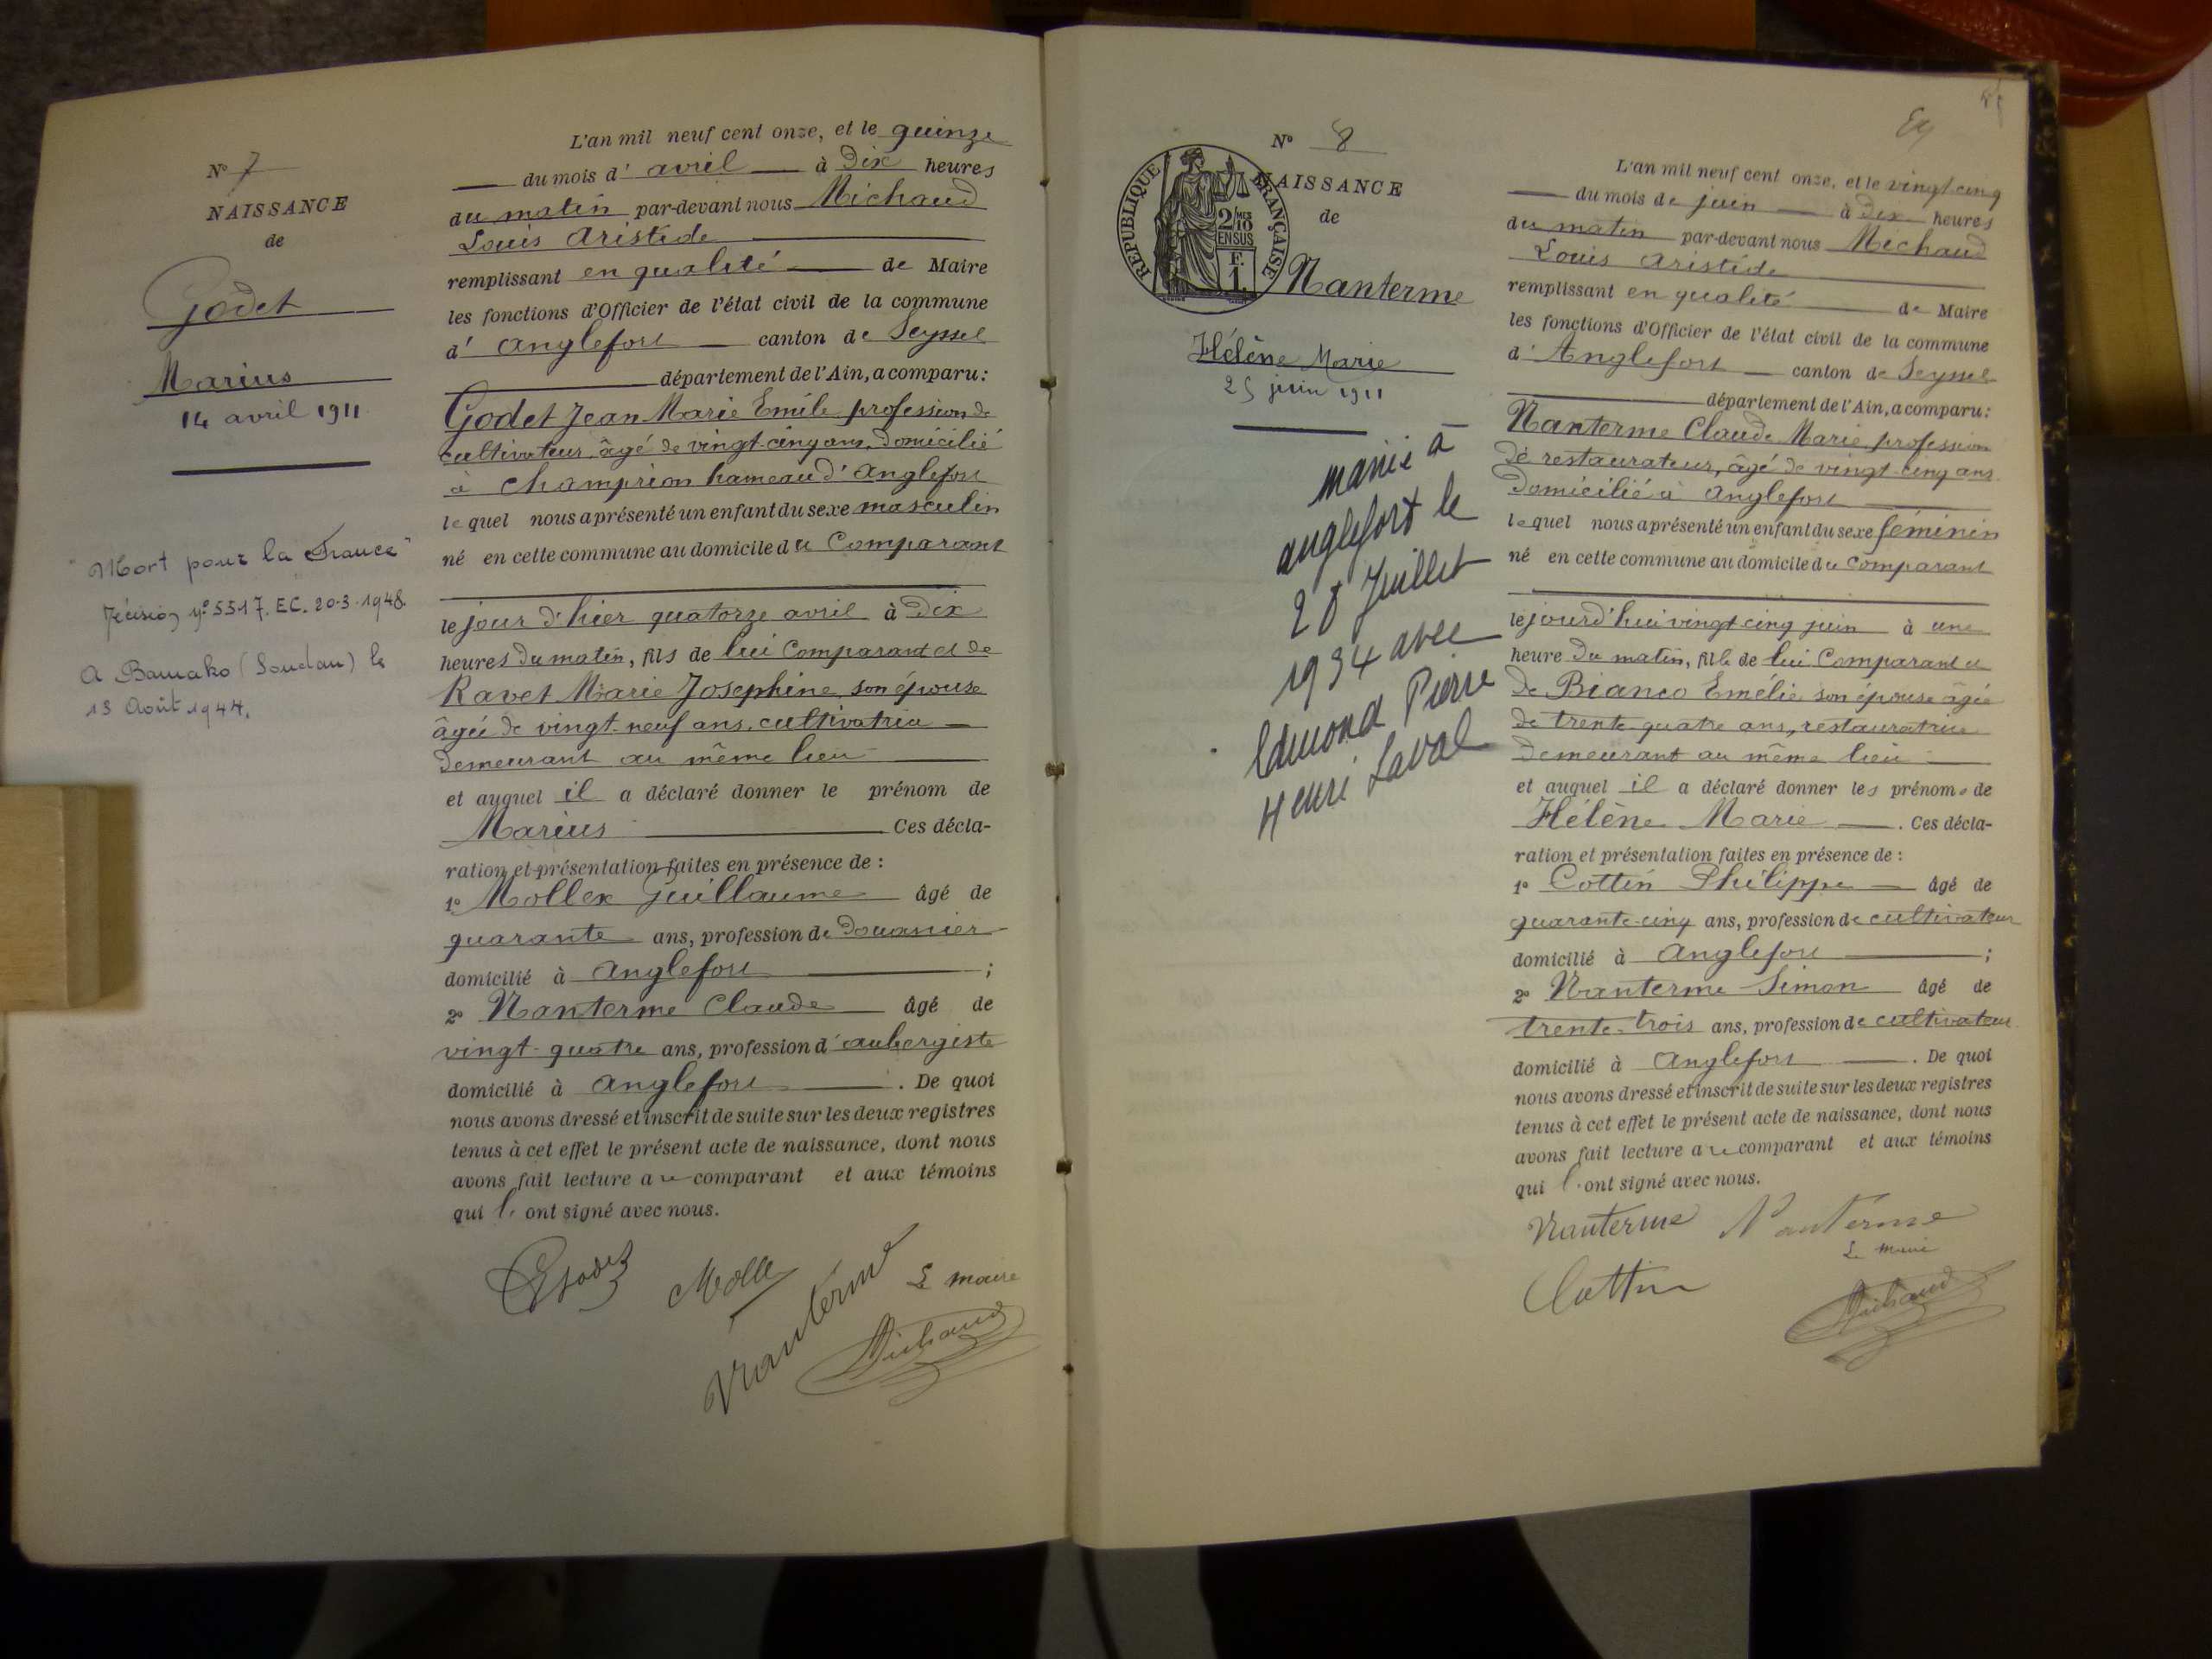 N° 7
NAISSANCE
de
Godet
Marius
14 avril 1911
"Mort pour la France"
Décision n° 5517. EC. 20-3-1948.
A Bamako (Soudan) le
13 Août 1944.
L'an mil neuf cent onze, et le quinze
du mois d'avril à dix heures
du matin par-devant nous Michaud
Louis Aristide
remplissant en qualité de Maire
les fonctions d'Officier de l'état civil de la commune
d'Anglefort canton de Seyssel
département de l'Ain, a comparu:
Godet Jean Marie Emile profession de
cultivateur, âgé de vingt-cinq ans, domicilié
à Champrion hameau d'Anglefort
lequel nous a présenté un enfant du sexe masculin
né en cette commune au domicile du Comparant
le jour d'hier quatorze avril à dix
heures du matin, fils de lui Comparant et de
Ravet Marie Josephine son épouse
âgée de vingt-neuf ans, cultivatrice
demeurant au même lieu
et auquel il a déclaré donner le prénom de
Marius Ces décla-
ration et présentation faites en présence de :
1° Mollex Guillaume âgé de
quarante ans, profession de Douanier
domicilié à Anglefort ;
2° Nanterme Claude âgé de
vingt-quatre ans, profession d'aubergiste
domicilié à Anglefort . De quoi
nous avons dressé et inscrit de suite sur les deux registres
tenus à cet effet le présent acte de naissance, dont nous
avons fait lecture au comparant et aux témoins
qui l'ont signé avec nous.
Godet Molle Nanterme Le maire
Michaud
N° 8
NAISSANCE
de
RÉPUBLIQUE FRANÇAISE
2/10 MES
EN SUS
F.
1.
Nanterme
Hélène Marie
25 juin 1911
marié à
anglefort le
28 Juillet
1934 avec
Edmond Pierre
Henri Laval
L'an mil neuf cent onze, et le vingt cinq
du mois de juin à dix heures
du matin par-devant nous Michaud
Louis Aristide
remplissant en qualité de Maire
les fonctions d'Officier de l'état civil de la commune
d'Anglefort canton de Seyssel
département de l'Ain, a comparu:
Nanterme Claude Marie profession
de restaurateur, âgé de vingt-cinq ans
domicilié à Anglefort
lequel nous a présenté un enfant du sexe féminin
né en cette commune au domicile du comparant
le jourd'hui vingt-cinq juin à une
heure du matin, fille de lui Comparant et
de Bianco Emélie son épouse âgée
de trente-quatre ans, restauratrice
demeurant au même lieu
et auquel il a déclaré donner les prénoms de
Hélène Marie . Ces décla-
ration et présentation faites en présence de :
1° Cottin Philippe âgé de
quarante-cinq ans, profession de cultivateur
domicilié à Anglefort ;
2° Nanterme Simon âgé de
trente-trois ans, profession de cultivateur
domicilié à Anglefort . De quoi
nous avons dressé et inscrit de suite sur les deux registres
tenus à cet effet le présent acte de naissance, dont nous
avons fait lecture au comparant et aux témoins
qui l'ont signé avec nous.
Nanterme Nanterme
Le maire
Cottin Michaud